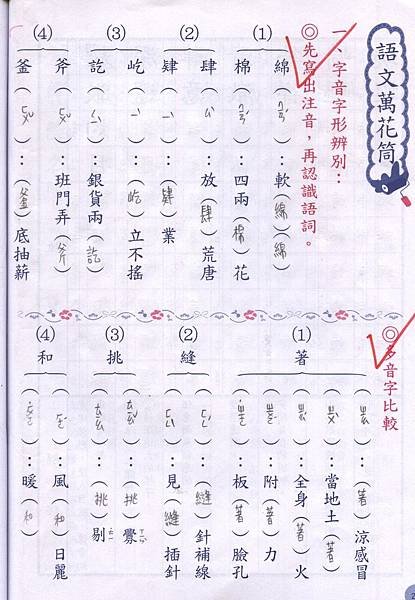 語文萬花筒
一、字音字形辨別：
◎先寫出注音，再認識語詞。
(1) 綿（ㄇㄧㄢˊ）：軟（綿）（綿）
棉（ㄇㄧㄢˊ）：四兩（棉）花
(2) 肆（ㄙˋ）：放（肆）荒唐
肄（ㄧˋ）：（肄）業
(3) 屹（ㄧˋ）：（屹）立不搖
訖（ㄑㄧˋ）：銀貨兩（訖）
(4) 斧（ㄈㄨˇ）：班門弄（斧）
釜（ㄈㄨˇ）：（釜）底抽薪
◎多音字比較
(1) 著（ㄓㄠ）：（著）涼感冒
：當地土（著）
：全身（著）火
：附（著）力
：板（著）臉孔
(2) 縫（ㄈㄥˊ）：（縫）針補線
（ㄈㄥˋ）：見（縫）插針
(3) 挑：（挑）釁
：（挑）剔
(4) 和：風（和）日麗
：暖（和）